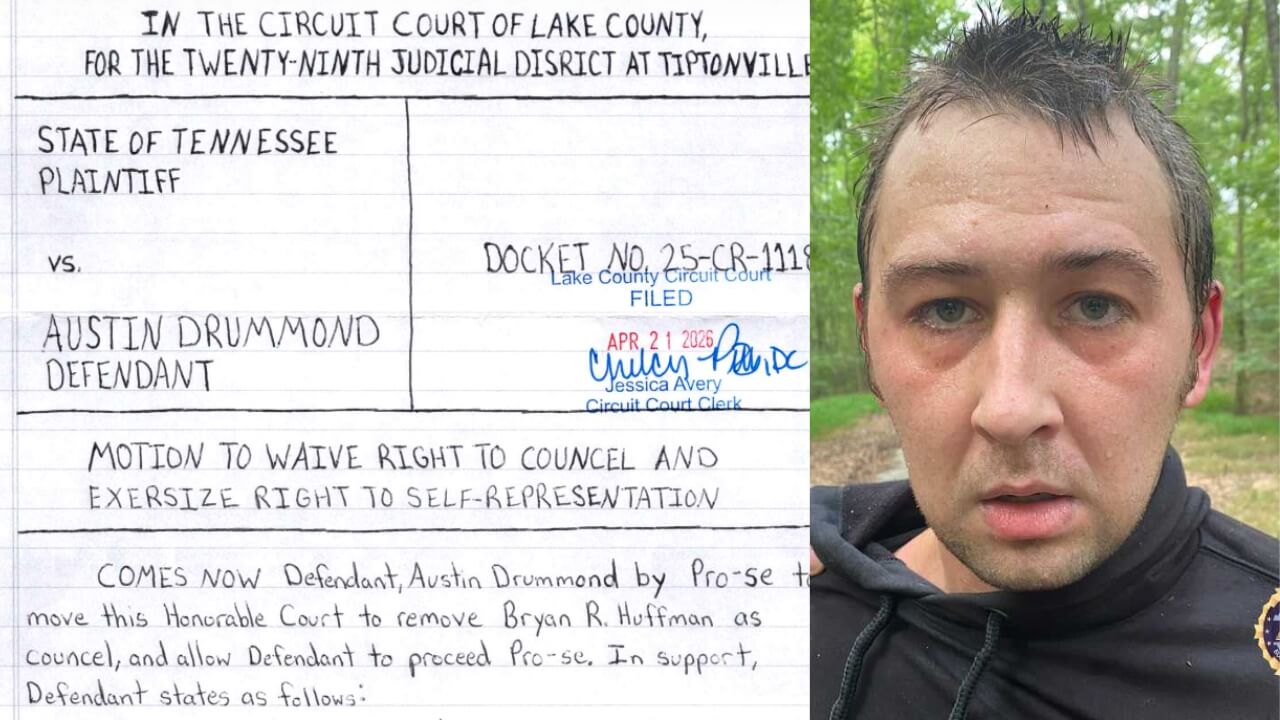 IN THE CIRCUIT COURT OF LAKE COUNTY,
FOR THE TWENTY-NINTH JUDICIAL DISRICT AT TIPTONVILLE
STATE OF TENNESSEE
PLAINTIFF
vs.
DOCKET NO. 25-CR-1118
Lake County Circuit Court
FILED
AUSTIN DRUMMOND
DEFENDANT
APR 21 2026
DC
Jessica Avery
Circuit Court Clerk
MOTION TO WAIVE RIGHT TO COUNCEL AND
EXERSIZE RIGHT TO SELF-REPRESENTATION
COMES NOW Defendant, Austin Drummond by Pro-se to
move this Honorable Court to remove Bryan R. Huffman as
councel, and allow Defendant to proceed Pro-se. In support,
Defendant states as follows: